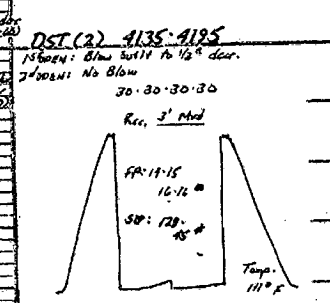 DST (2) 4135-4195
1st OPEN: Blow built to 1/2" decr.
2nd OPEN: No Blow
30-30-30-30
Rec. 3' Mud
FP: 14-15
16-16 #
SIP: 128-
45 #
Temp.
111° F